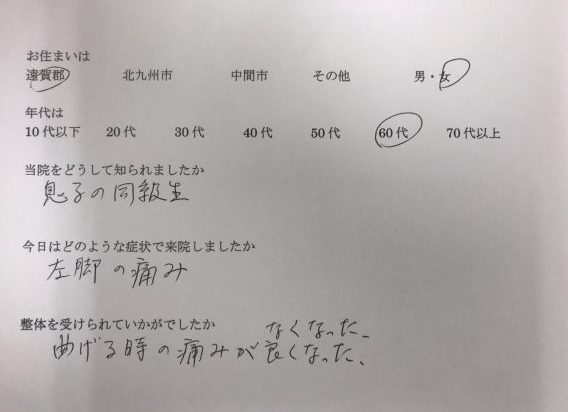 お住まいは
遠賀郡 北九州市 中間市 その他 男・女
年代は
10代以下 20代 30代 40代 50代 60代 70代以上
当院をどうして知られましたか
息子の同級生
今日はどのような症状で来院しましたか
左脚の痛み
整体を受けられていかがでしたか
なくなった。
曲げる時の痛みが良くなった。